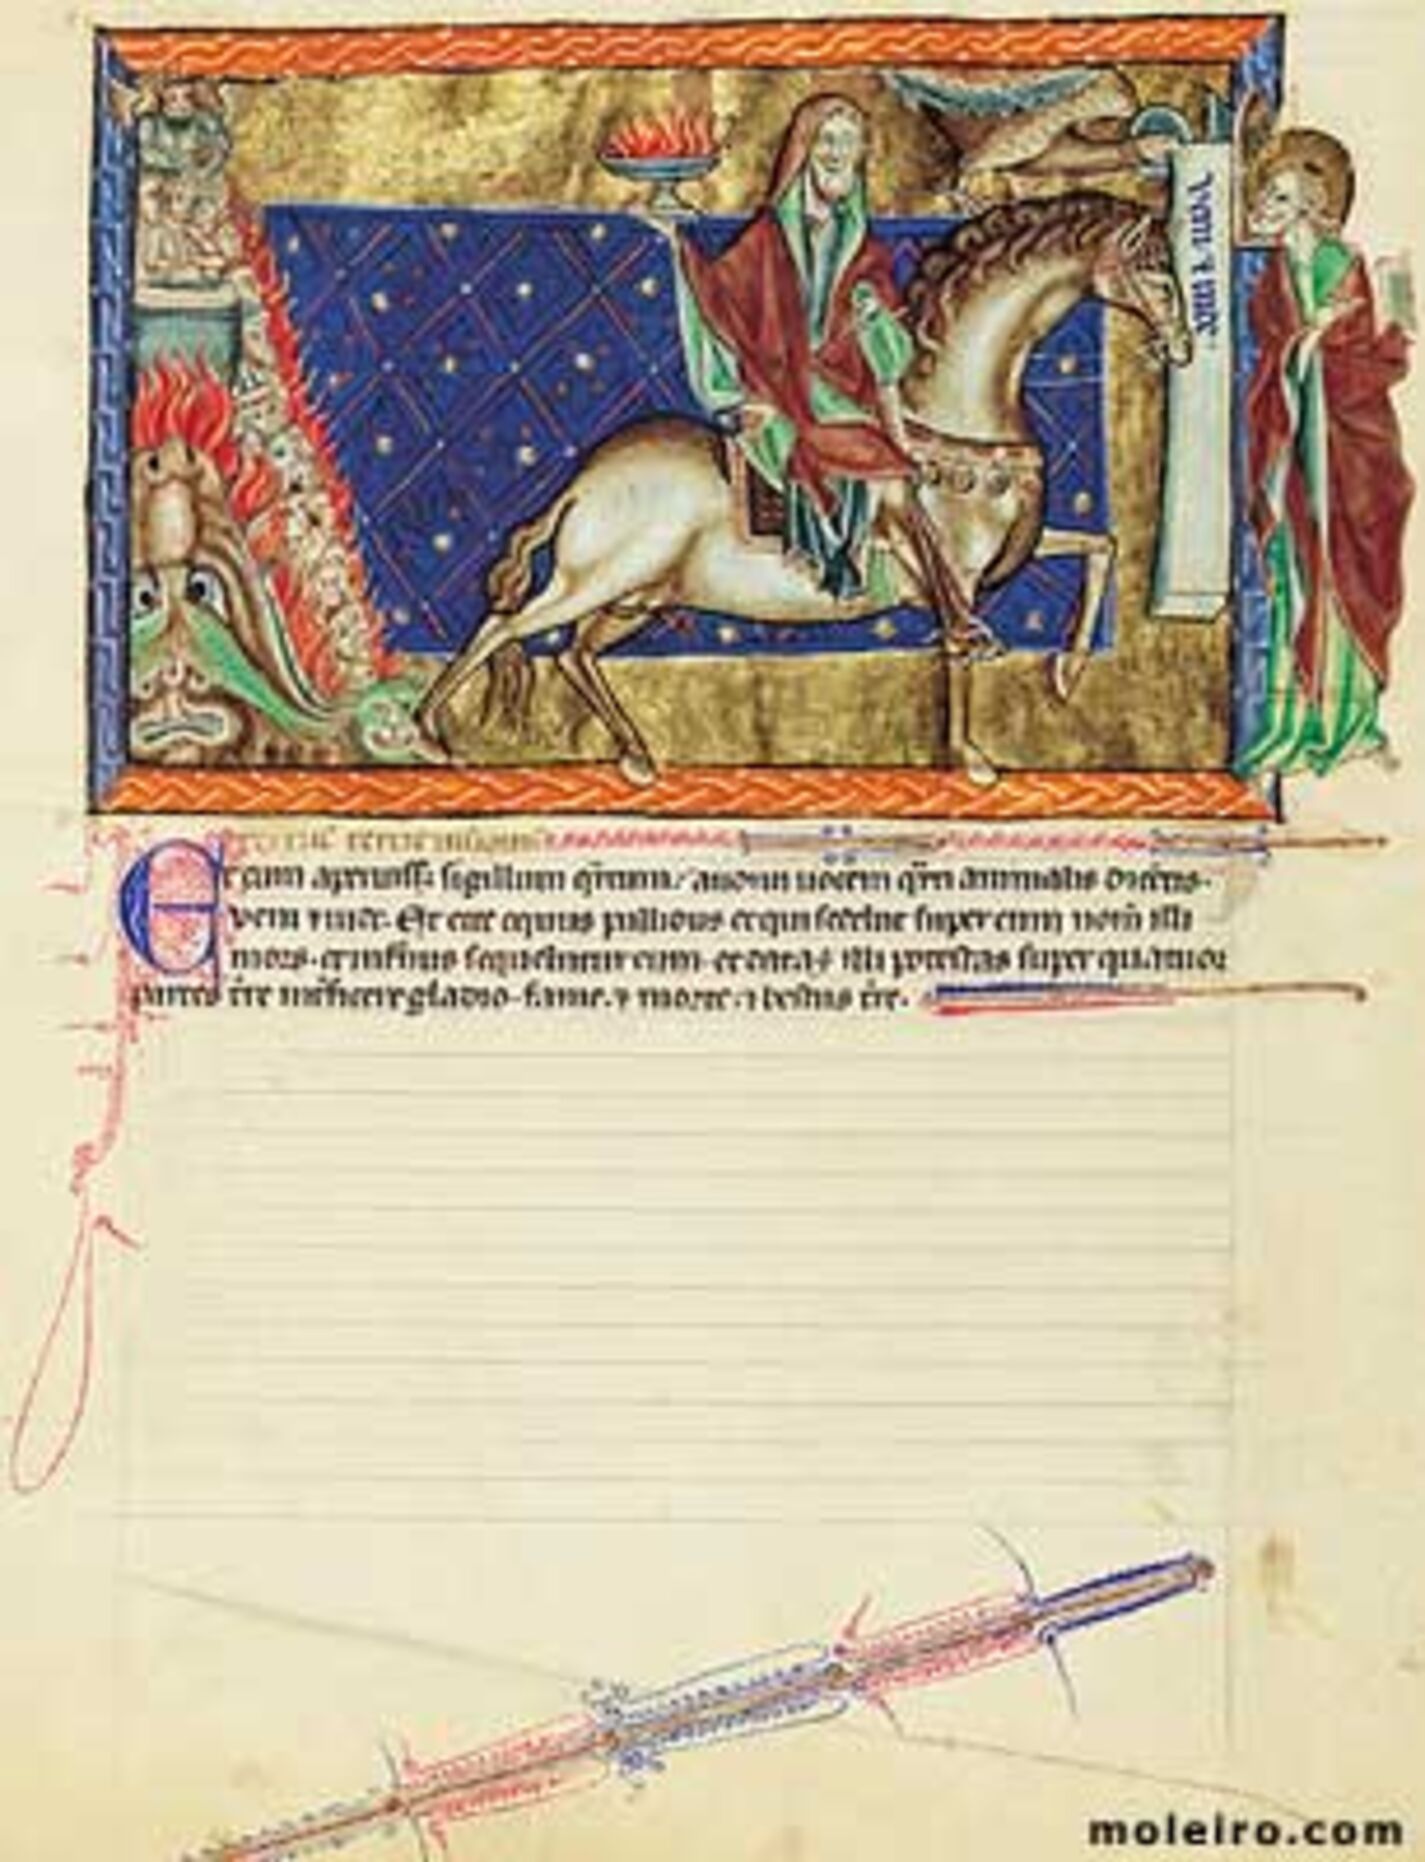 Veni & vide
Et cum aperuiss; sigillum q̄rtum / audiui uocem q̄rti animalis dicētis.
veni & uide. Et ecce equus pallidus et qui sedebat super eum nom̄ illi
mors. et infernus sequebatur eum. et data ÷ illi potestas super quatuor
partes t̄re int̄ficere gladio. fame. & morte. & bestiis t̄re.
moleiro.com